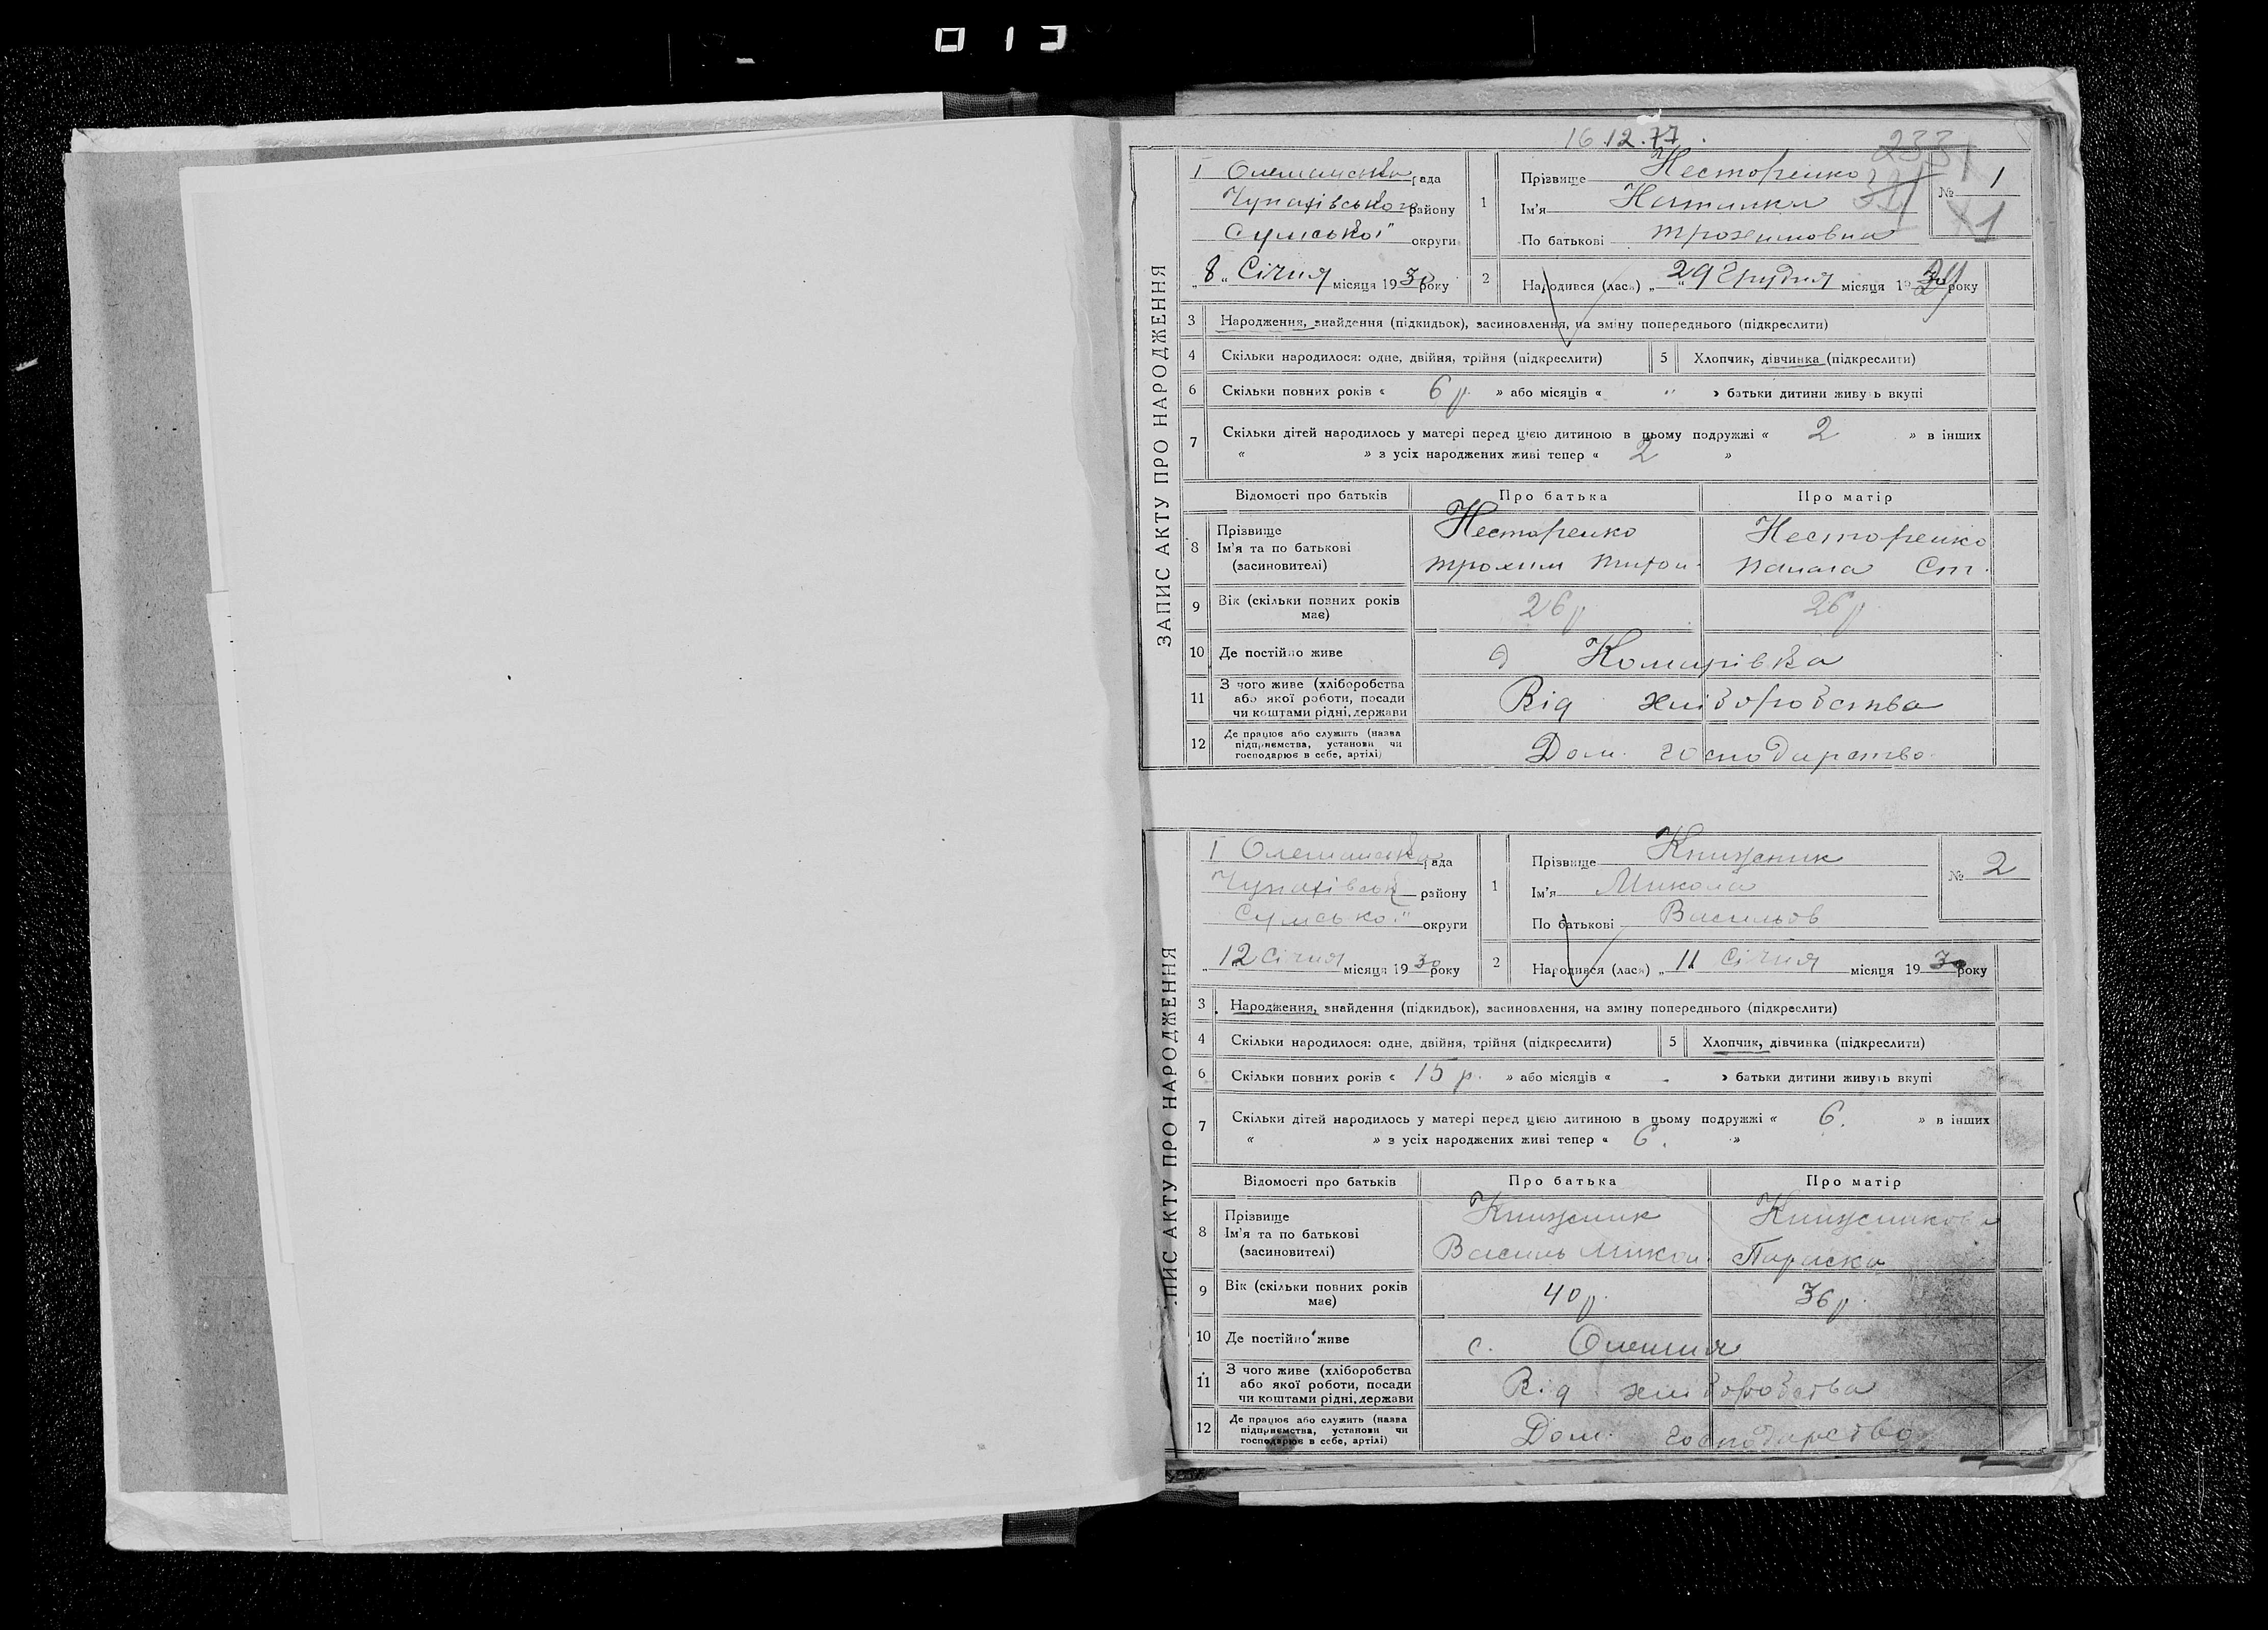 013
16.12.77.
233
ЗАПИС АКТУ ПРО НАРОДЖЕННЯ
I Олешанська рада
Чупахівського району
Сумської округи
„8“ Січня місяця 1930 року
1 Прізвище Несторенко
Ім'я Наталка
По батькові Трохимовна
№ 1
1
2 Народився (лась) „29“ Грудня місяця 19 року
3 Народження, знайдення (підкидьок), засиновлення, на зміну попереднього (підкреслити)
4 Скільки народилося: одне, двійня, трійня (підкреслити) 5 Хлопчик, дівчинка (підкреслити)
6 Скільки повних років « 6 р. » або місяців « " » батьки дитини живуть вкупі
7 Скільки дітей народилось у матері перед цією дитиною в цьому подружжі « 2 » в інших
« » з усіх народжених живі тепер « 2 »
Відомості про батьків Про батька Про матір
8 Прізвище Ім'я та по батькові (засиновителі)
Несторенко Несторенко
Трохим Палага Ст.
9 Вік (скільки повних років має) 26 р 26 р
10 Де постійно живе Комарівка
11 З чого живе (хліборобства або якої роботи, посади чи коштами рідні, держави Від хліборобства
12 Де працює або служить (назва підприємства, установи чи господарює в себе, артілі) Дом. господарство.
ПИС АКТУ ПРО НАРОДЖЕННЯ
I Олешанська рада
Чупахівськ району
Сумської округи
„12 Січня місяця 1930 року
1 Прізвище Книжник
Ім'я Микола
По батькові Васильов
№ 2
2 Народився (лася) „11 Січня місяця 1930 року
3 Народження, знайдення (підкидьок), засиновлення, на зміну попереднього (підкреслити)
4 Скільки народилося: одне, двійня, трійня (підкреслити) 5 Хлопчик, дівчинка (підкреслити)
6 Скільки повних років « 15 р. » або місяців « - » батьки дитини живуть вкупі
7 Скільки дітей народилось у матері перед цією дитиною в цьому подружжі « 6. » в інших
« » з усіх народжених живі тепер « 6. »
Відомості про батьків Про батька Про матір
8 Прізвище Ім'я та по батькові (засиновителі)
Книжник Книжникова
Василь Микол. Параска
9 Вік (скільки повних років має) 40 р. 36 р.
10 Де постійно живе с. Олешня
11 З чого живе (хліборобства або якої роботи, посади чи коштами рідні, держави Від хліборобства
12 Де працює або служить (назва підприємства, установи чи господарює в себе, артілі) Дом. господарство